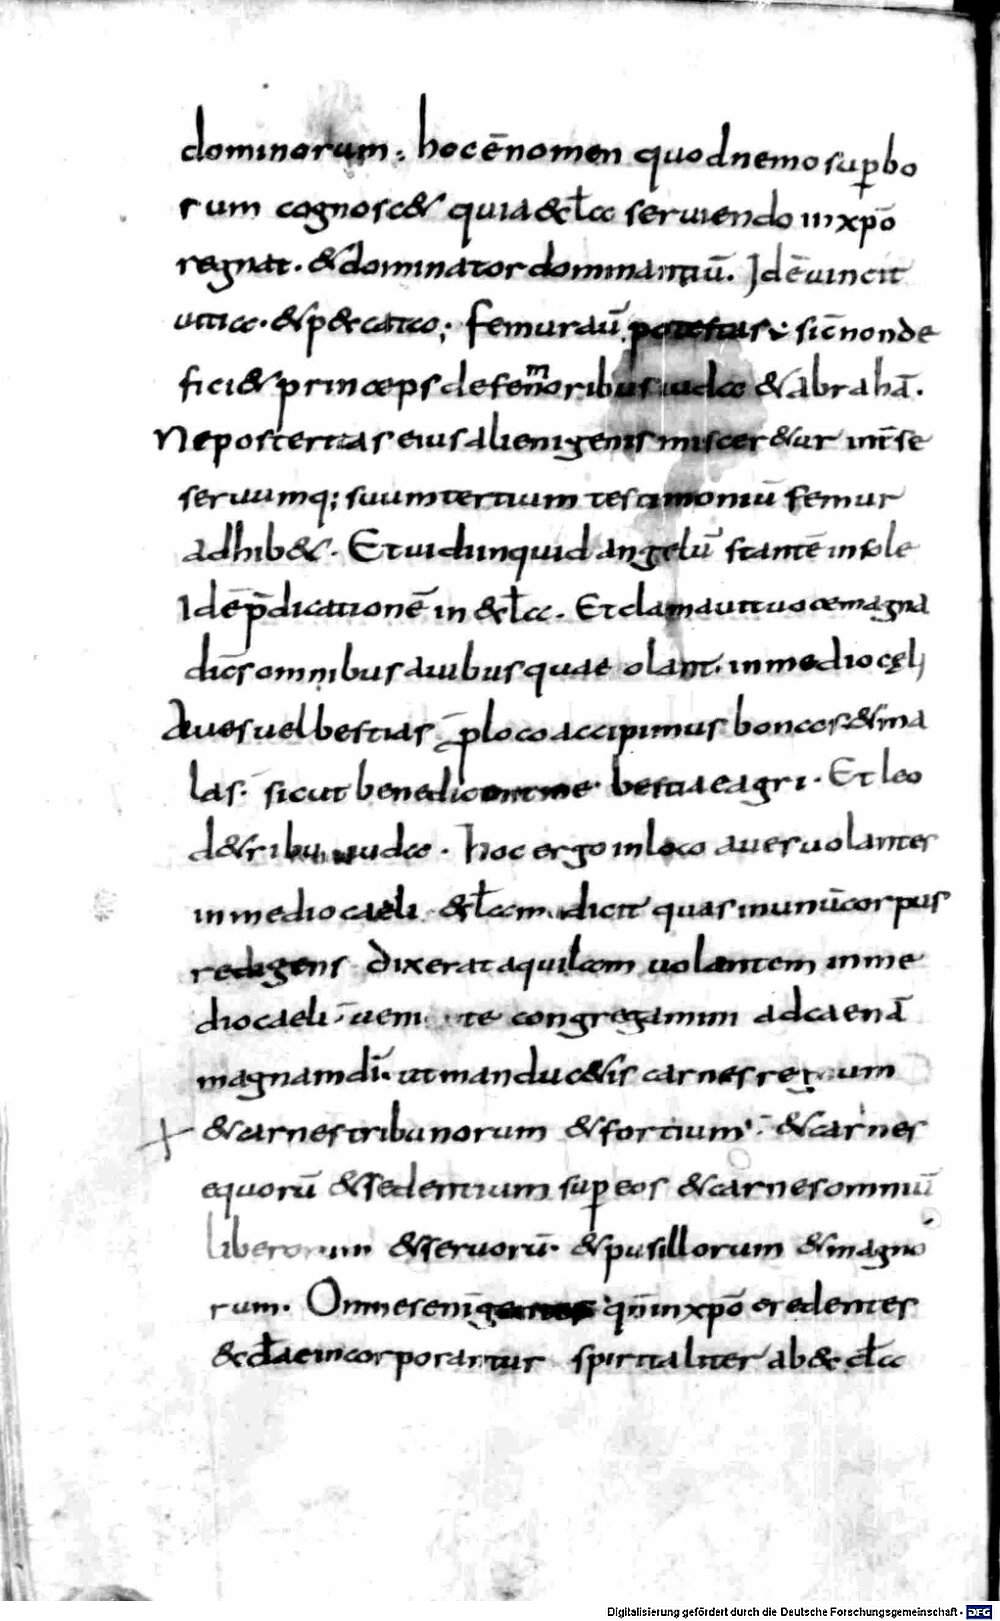 dominorum; hoc ē nomen quod nemo sup̱bo
rum cognosc& quia &cl̄a seruiendo in xp̄o
regnat. & dominator dominantiū. Id ē uincit
uitia. & p&cata; femur aū potestas; sic̄ non de
fici& princeps de femoribus iuda & abrahā.
Ne posteritas eius alienigenis miscer&ur int̄ se
seruumq; suum tertium testimoniū femur
adhib&. Et uidi inquid angelū stantē in sole
Id ē p̄dicationē in &cl̄a. Et clamauit uoce magna
dic̄s omnibus auibus quae olant. in medio cęli
Aues uel bestias p̄ loco accipimus bonas & ma
las. sicut benedicent me bestiae agri. Et leo
de tribu iuda. hoc ergo in loco aues uolantes
in medio caeli &cl̄am dicit quas in unū corpus
redigens dixerat aquilam uolantem in me
dio caeli. uenite congregamini ad caenā
magnam dī. ut manduc&is carnes regum
& carnes tribunorum & fortium. & carnes
equorū & sedentium sup̱ eos & carnes omniū
liberorum & seruorū. & pusillorum & magno
rum. Omnes enī gentes qn̄ in xp̄o credentes
&cl̄ae incorporantur spiritaliter ab &cl̄a
Digitalisierung gefördert durch die Deutsche Forschungsgemeinschaft - DFG